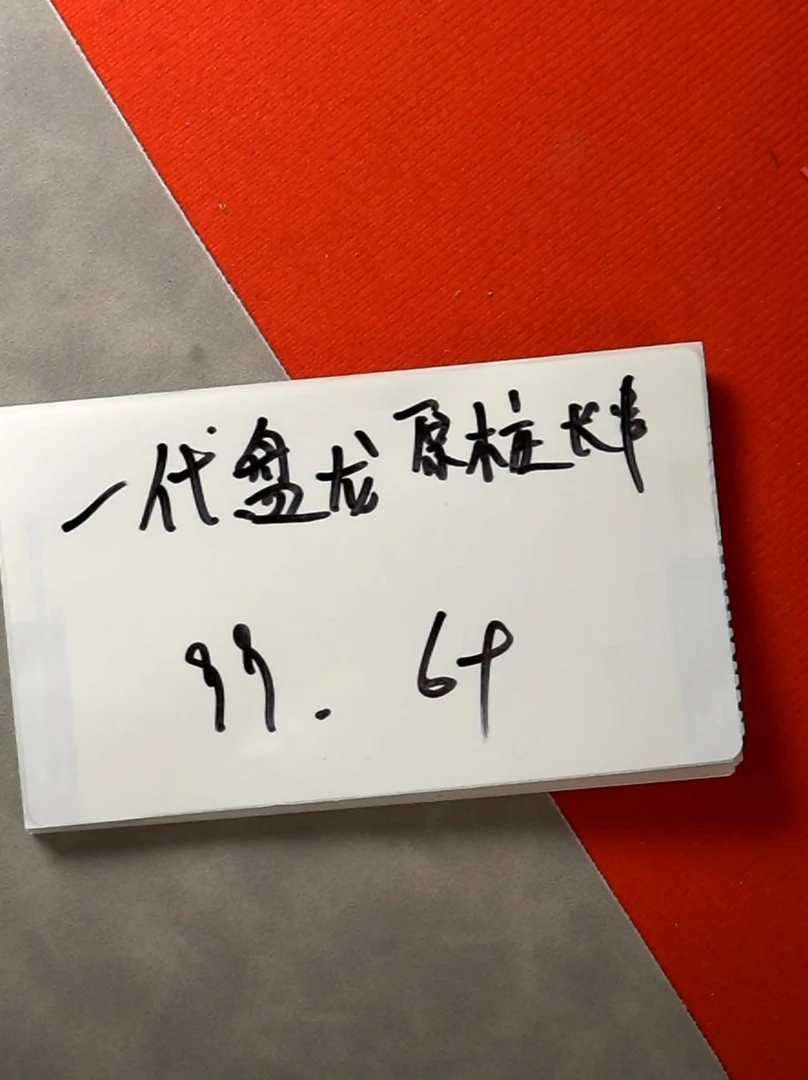 一代盘龙原桩长
99. 69